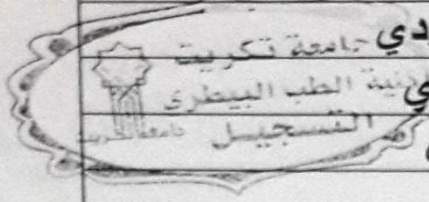 جامعة تكريت
كلية الطب البيطري
التسجيل
جامعة تكريت
دي
ي